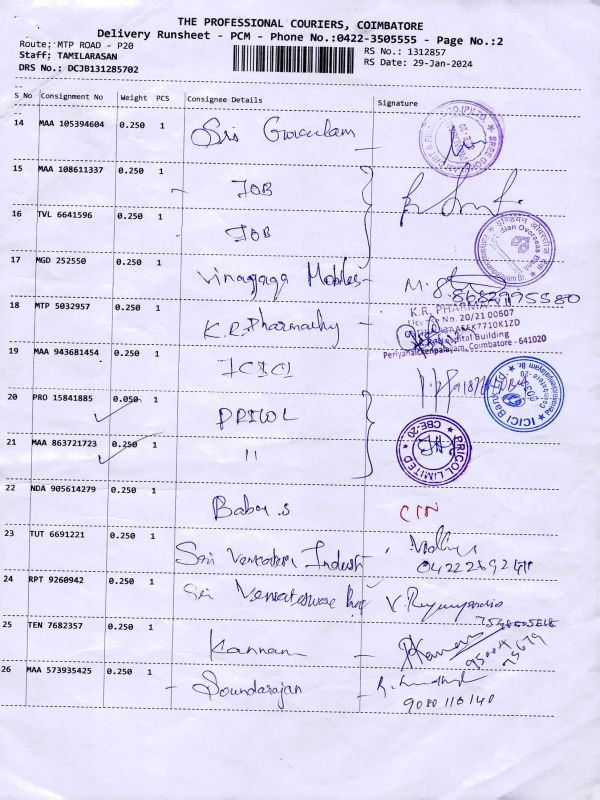 THE PROFESSIONAL COURIERS, COIMBATORE
Delivery Runsheet - PCM - Phone No.:0422-3505555 - Page No.:2
Route: MTP ROAD - P20
RS No.: 1312857
Staff: TAMILARASAN
RS Date: 29-Jan-2024
DRS No.: DCJB131285702
S No Consignment No Weight PCS Consignee Details Signature
14 MAA 105394604 0.250 1 Sri Gokulam
15 MAA 108611337 0.250 1 IOB
16 TVL 6641596 0.250 1 IOB
इण्डियन ओवरसीज बैंक
Indian Overseas Bank
17 MGD 252550 0.250 1 Vinayaga Mobiles
18 MTP 5032957 0.250 1 K.R. Pharmacy
K.R. PHARMA
No. 20/21 00607
Hospital Building
Periyanaickenpalayam, Coimbatore - 641020
19 MAA 943681454 0.250 1 ICICI
ICICI Bank
20 PRO 15841885 0.050 1 PRICOL
21 MAA 863721723 0.250 1 11
PRICOL LIMITED
CBE-20
22 NDA 905614279 0.250 1 Babu .s
23 TUT 6691221 0.250 1 Sri Venkateswara Indust
24 RPT 9260942 0.250 1 Sri Venkateswara
25 TEN 7682357 0.250 1 Kannan
26 MAA 573935425 0.250 1 Soundarajan
9080 116140